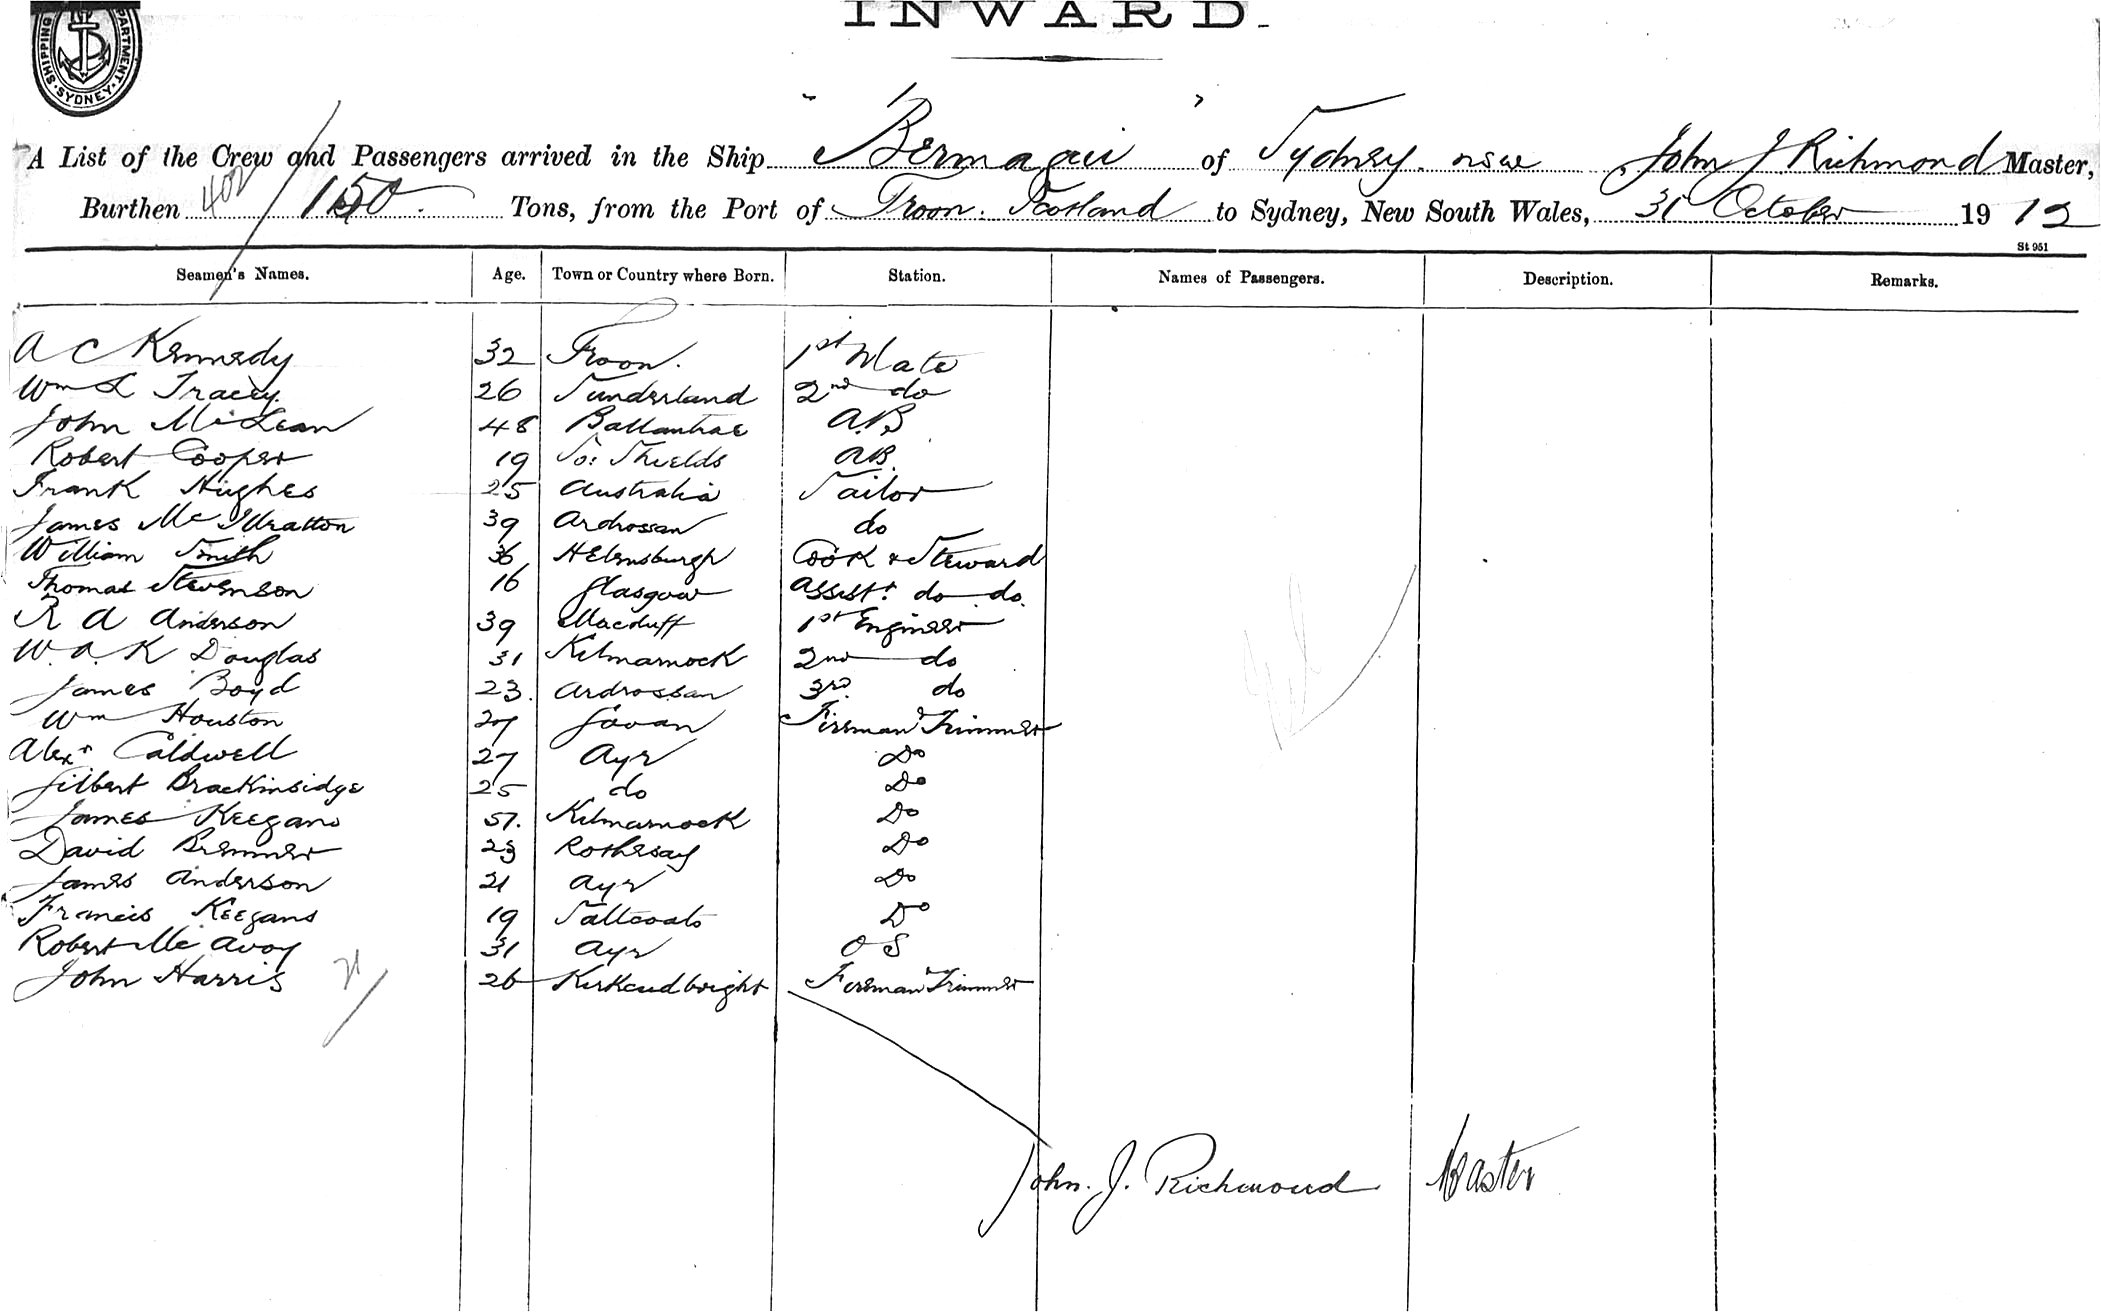 INWARD.
SHIPPING DEPARTMENT. SYDNEY.
A List of the Crew and Passengers arrived in the Ship "Bermagui" of Sydney. nsw John J Richmond Master,
Burthen 402/150. Tons, from the Port of Troon. Scotland to Sydney, New South Wales, 31 October 1912
St 951
Seamen's Names. Age. Town or Country where Born. Station. Names of Passengers. Description. Remarks.
A C Kennedy 32 Troon. 1st Mate
Wm L Tracey. 26 Sunderland 2nd do
John McLean 48 Ballantrae A.B
Robert Cooper 19 So: Shields AB.
Frank Hughes 25 Australia Sailor
James Mc Ilwratton 39 Ardrossan do
William Smith 36 Helensburgh Cook & Steward
Thomas Stevenson 16 Glasgow Assist. do do.
R A Anderson 39 Macduff 1st Engineer
W. A. K Douglas 31 Kilmarnock 2nd do
James Boyd 23. Ardrossan 3rd. do
Wm Houston 27 Govan Fireman & Trimmer
Alexr Caldwell 27 Ayr Do
Gilbert Brackinsidge 25 do Do
James Keegans 57. Kilmarnock Do
David Bremner 23 Rothesay Do
James Anderson 21 Ayr Do
Francis Keegans 19 Saltcoats Do
Robert Mc Avoy 31 Ayr O S
John Harris 26 Kirkcudbright Fireman & Trimmer
21/
John. J. Richmond Master